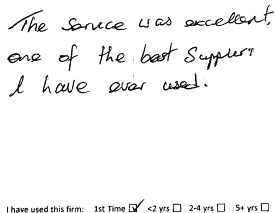 The service was excellent,
one of the best Suppliers
I have ever used.
I have used this firm: 1st Time ☑ <2 yrs ☐ 2-4 yrs ☐ 5+ yrs ☐